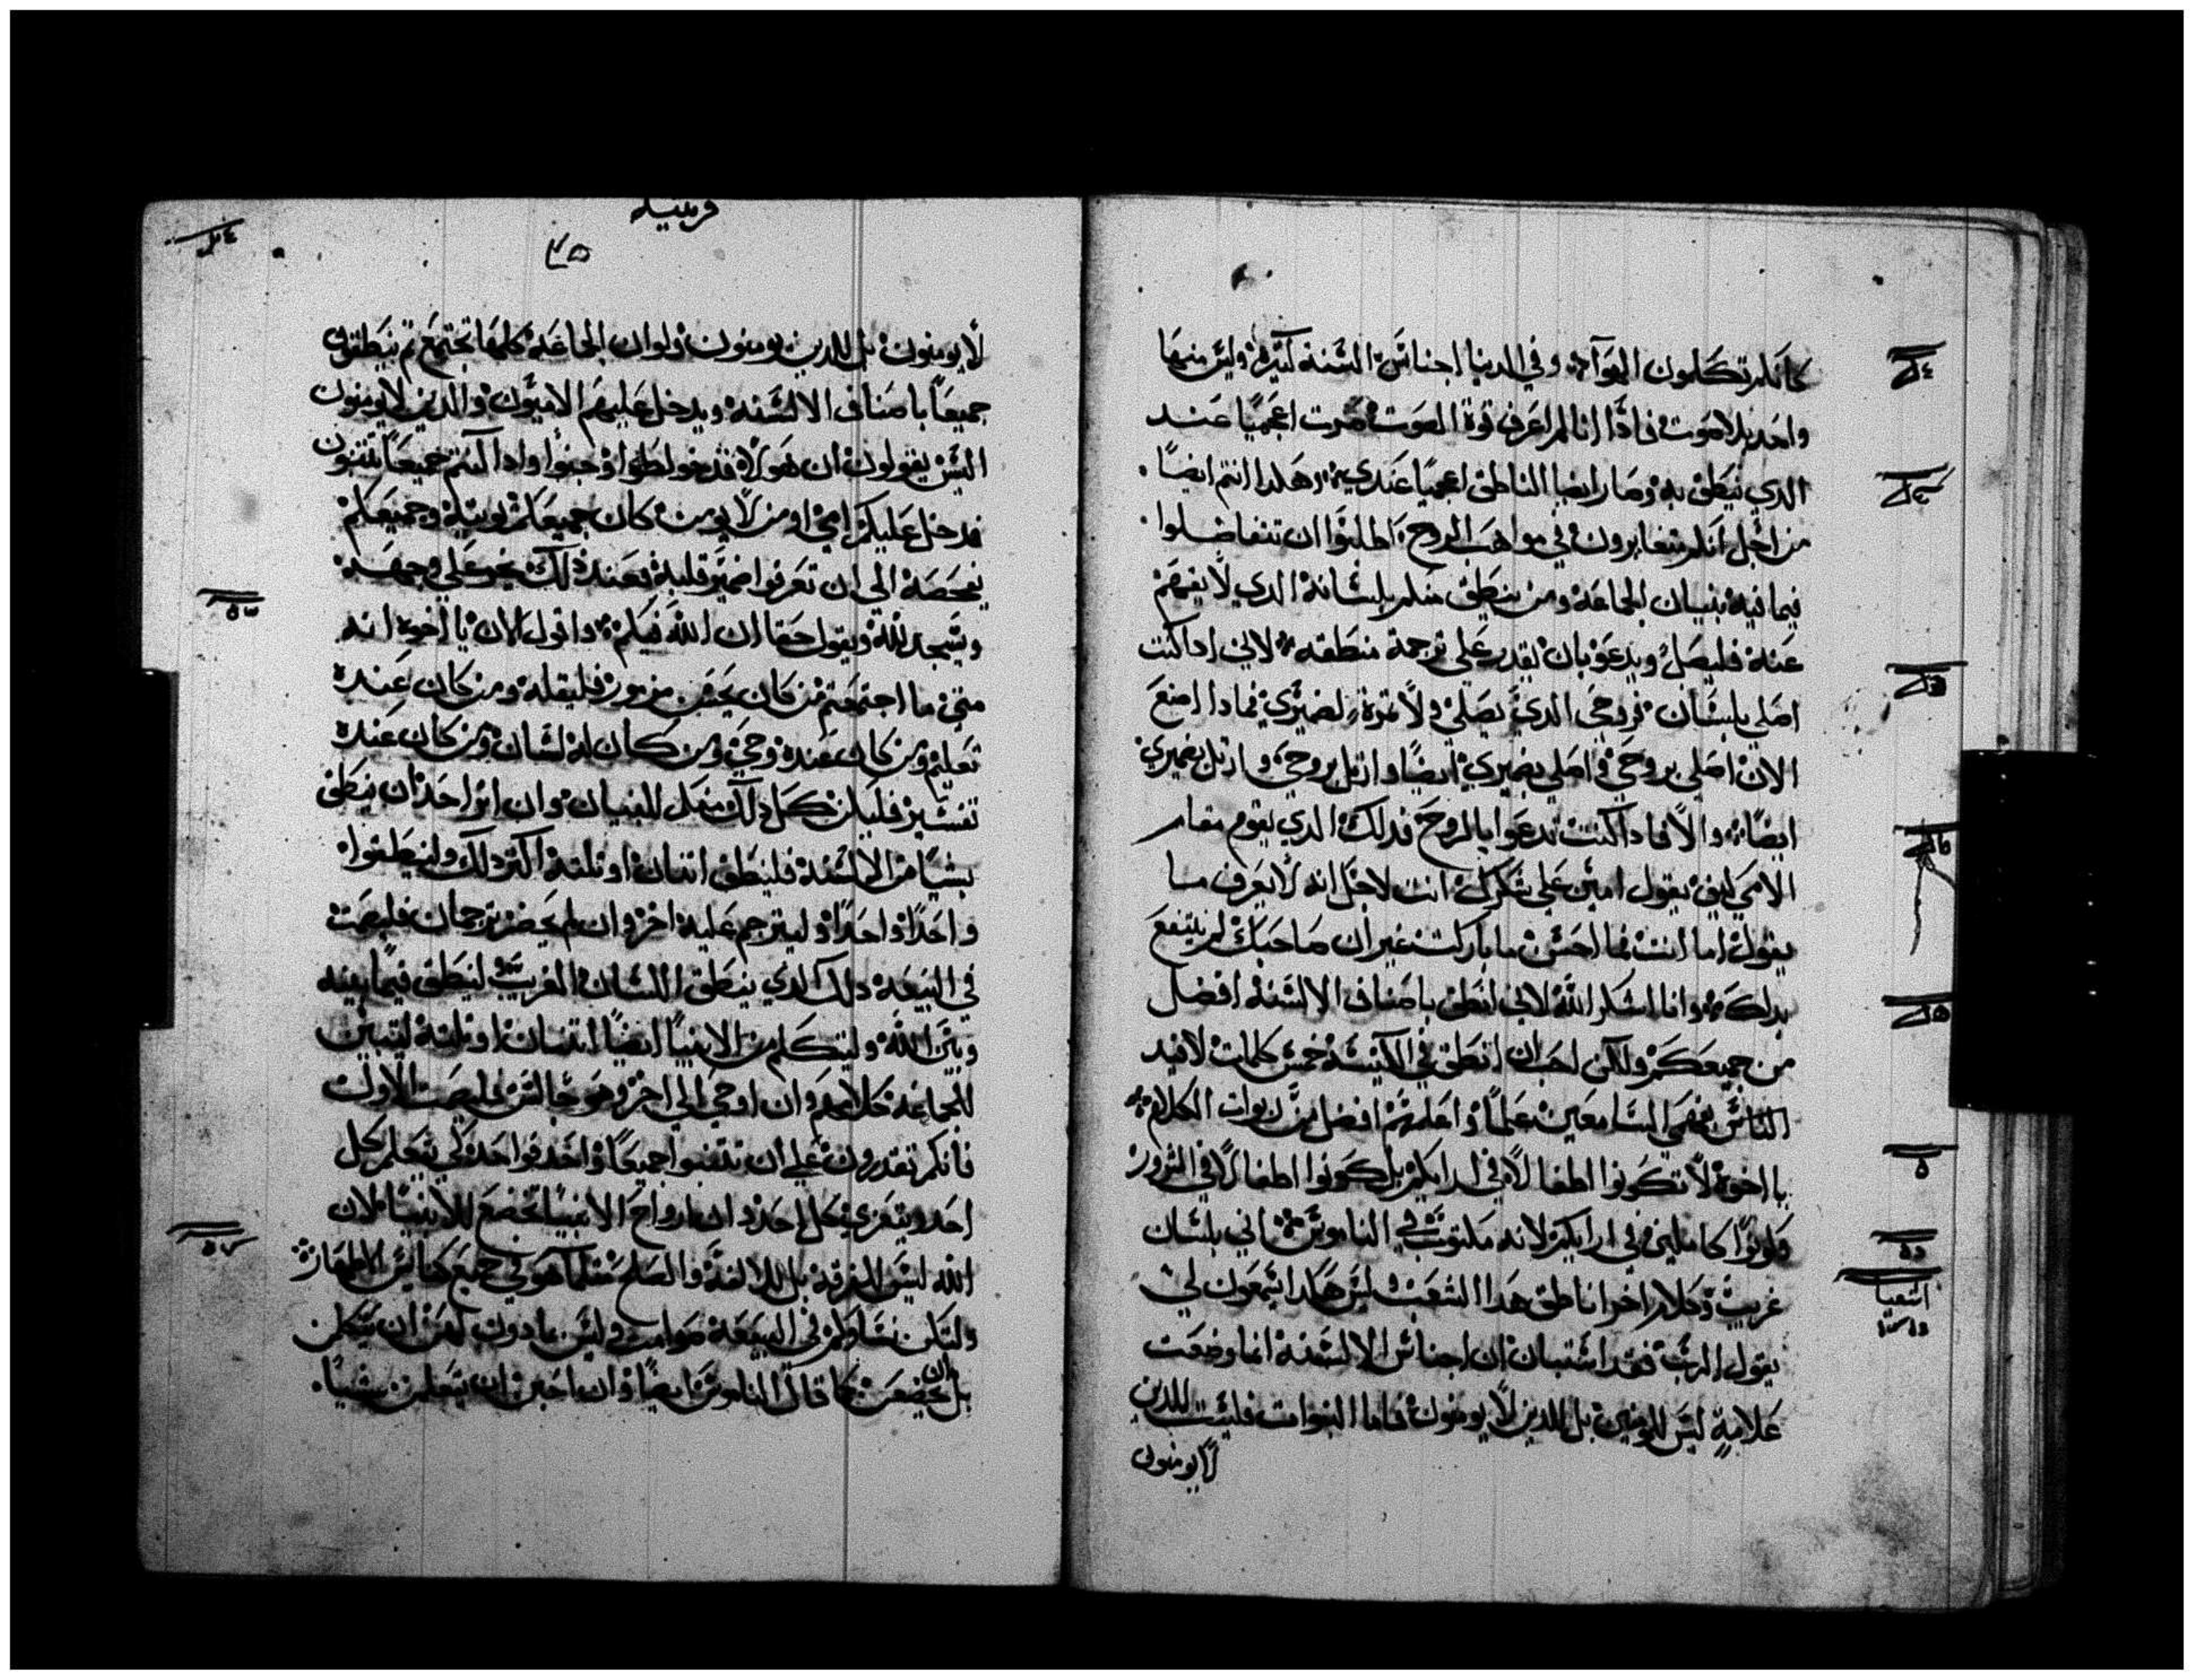 كانكم تكلمون الهوآء وفي الدنيا اجناس السنة كثيرة وليس منها
واحد بلا صوت فاذا انا لم اعرف قوة الصوت صرت اعجميًا عند
الدي ينطق به وصار ايضا الناطق اعجميًا عندي وهكدا انتم ايضًا
من اجل انكم متغايرون في مواهب الروح اطلبوا ان تتفاضلوا
فيما فيه بنيان الجماعة ومن ينطق منكم بلسانه الدي لا يفهم
عنه فليصل ويدعو بان يقدر على ترجمة منطقه لاني ادا كنت
اصلي بلسان فروحي الدي يصلي ولا ثمرة لضميري فمادا اصنع
الان اصلي بروحي واصلي بضميري ايضًا وارتل بروحي وارتل بضميري
ايضًا والا فادا كنت تدعوا بالروح فدلك الدي يقوم مقام
الامي كيف يقول امين على شكرك انت لاجل انه لا يعرف ما
يقول اما انت فما احسن ما باركت غير ان صاحبك لم ينتفع
بدلك وانا اشكر الله لاني انطق باصناف الالسنة افضل
من جميعكم ولكن احب ان انطق في الكنيسة خمس كلمات لافيد
الناس بفهمي السامعين علمًا واعلمهم افضل من ربوات الكلام
يا اخوة لا تكونوا اطفالًا في ارايكم بل كونوا اطفالًا في الشرور
وكونوا كاملين في ارايكم لانه مكتوب في الناموس اني بلسان
غريب وكلام اخر اناطق هدا الشعب وليس هكدا يسمعون لي
يقول الرب فقد استبان ان اجناس الالسنة انما وضعت
علامة ليس للمومنين بل للدين لا يومنون فاما النبوات فليست للدين
لا يومنون
اشعيا
قرنتيه
٧٥
لا يومنون بل للدين يومنون ولو ان الجماعة كلها تجتمع ثم ينطقون
جميعًا باصناف الالسنة ويدخل عليهم الاميون والدين لا يومنون
اليس يقولون ان هولا قد وجنوا وادا كنتم جميعًا تتنبون
فدخل عليكم امي او من لا يومن كان جميعكم يوبنه وجميعكم
يفحصه الى ان تعرفوا ضمير قلبه فعند دلك يخر على وجهه
ويسجد لله ويقول حقا ان الله فيكم واقول الان يا اخوه انه
متى ما اجتمعتم من كان يحسن مزمور فليقله ومن كان عنده
تعليم ومن كان عنده وحي ومن كان له لسان ومن كان عنده
تفسير فليكن كل دلك منكم للبنيان وان اثر احد ان ينطق
بشيًا من الالسنة فلينطق اتنان او تلته اكثر دلك ولينطقوا
واحدًا واحدًا وليترجم عليه اخر وان لم يحضر ترجمان فليصمت
في البيعة دلك الدي ينطق اللسان الغريب لينطق فيما بينه
وبين الله وليتكلم من الانبيا ايضًا اتنان او تلته ليتبين
للجماعة كلامهم وان اوحي الى اخر وهو جالس فليصمت الاول
فانكم تقدرون على ان تتنبوا جميعًا واحد فواحد كي يتعلم كل
احد ويتعزي كل احد وان ارواح الانبيا تخضع للانبيا لان
الله ليس للفرقة بل للالفة والصلح مثلما هو في جميع كنايس الاطهار
ولتكن نساوكم في البيعة صوامت وليس مادون لهن ان يتكلمن
بل ان يخضعن كما قال الناموس ايضًا وان احببن ان يتعلمن شيًا